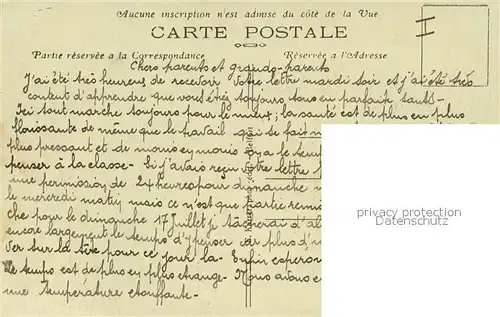 Aucune inscription n'est admise du côté de la Vue
CARTE POSTALE
Partie réservée a la Correspondance
Réservée a l'Adresse
Chers parents et grands-parents
J'ai été très heureux de recevoir votre lettre mardi soir et j'ai été très
content d'apprendre que vous étiez toujours tous en parfaite santé -
Ici tout marche toujours pour le mieux; la santé est de plus en plus
florissante de même que le travail qui se fait
plus pressant et de moins en moins le
penser à la classe - Si j'avais reçu votre lettre
une permission de 24 heures pour dimanche
le mercredi matin mais ce n'est que partie remi
che pour le dimanche 17 Juillet je tâcherai d'
encore largement le temps d'y penser car plus d'
ver sur la tête pour ce jour là - Enfin esperon
le temps est de plus en plus change - Nous avons
une température étouffante -
privacy protection
www.ansichtskarten-center.de